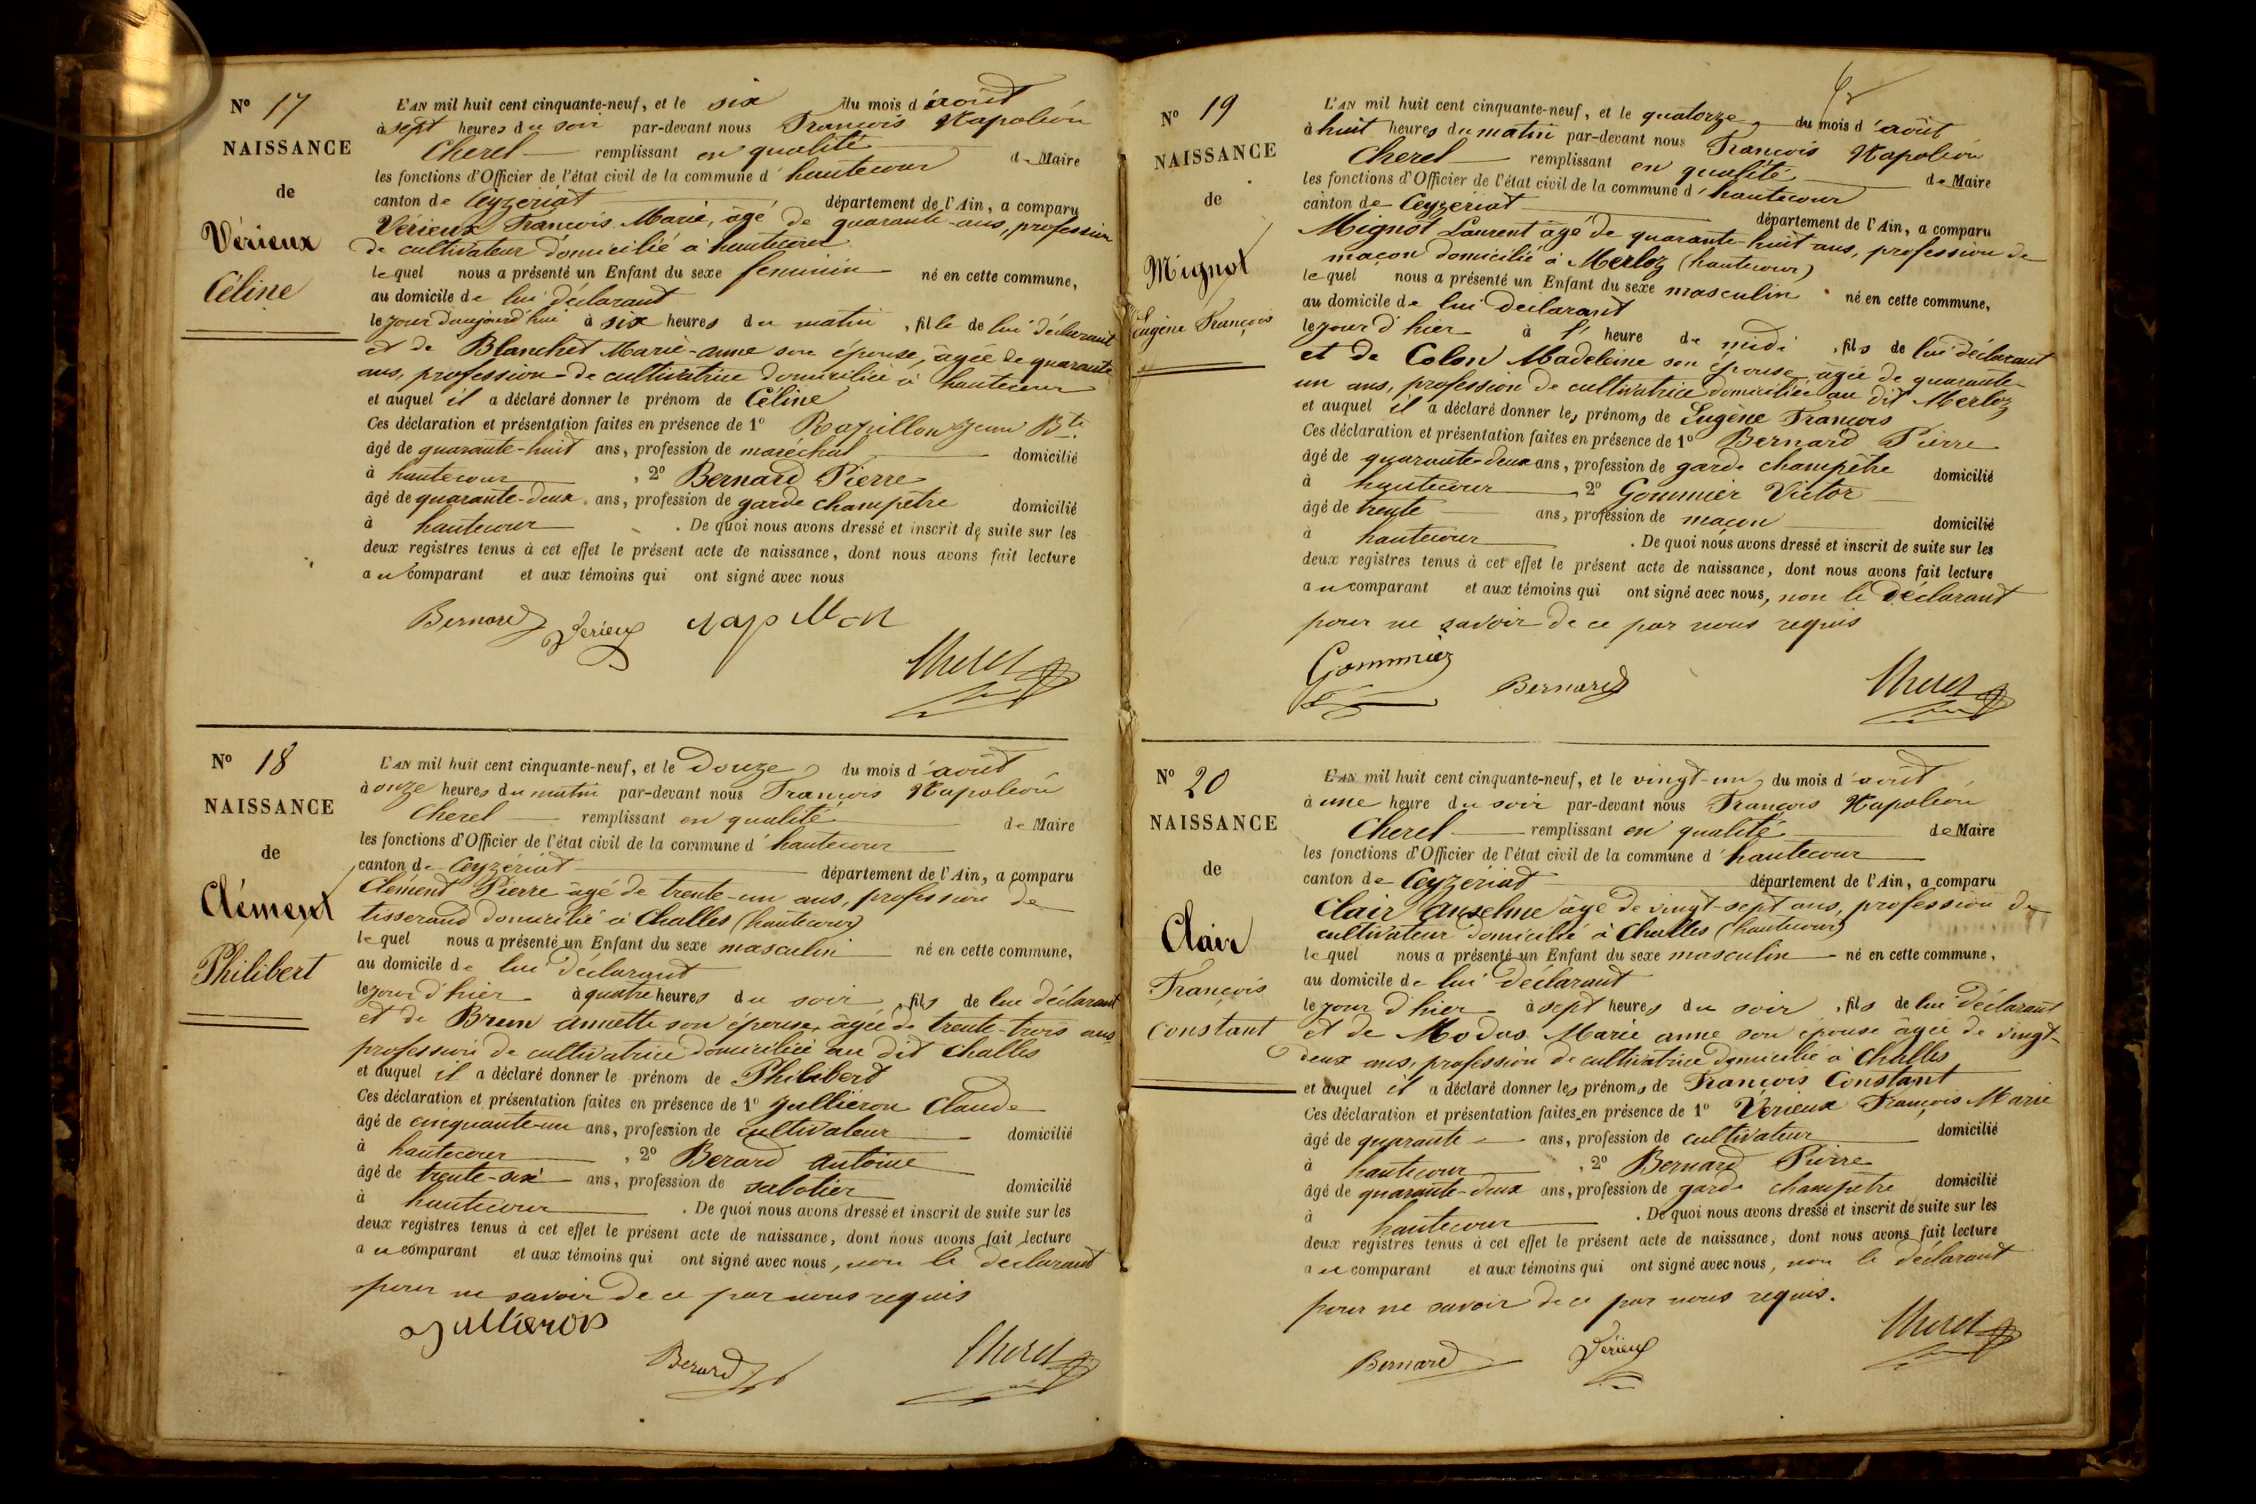 Nº 17
NAISSANCE
de
Vérieux
Céline
L'AN mil huit cent cinquante-neuf, et le six du mois d'août
à sept heures du soir par-devant nous François Napoléon
Cherel remplissant en qualité de Maire
les fonctions d'Officier de l'état civil de la commune d'hautecour
canton de Ceyzériat département de l'Ain, a comparu
Vérieux François Marie, âgé de quarante ans, profession
de cultivateur domicilié à hautecour
lequel nous a présenté un Enfant du sexe feminin né en cette commune,
au domicile de lui déclarant
le jour d'aujourd'hui à six heures du matin, fille de lui déclarant
et de Blanchet Marie-anne son épouse, âgée de quarante
ans, profession de cultivatrice domiciliée à hautecour
et auquel il a déclaré donner le prénom de Céline
Ces déclaration et présentation faites en présence de 1º Rapillon Jean Bte
âgé de quarante-huit ans, profession de maréchal domicilié
à hautecour, 2º Bernard Pierre
âgé de quarante-deux ans, profession de garde champêtre domicilié
à hautecour. De quoi nous avons dressé et inscrit de suite sur les
deux registres tenus à cet effet le présent acte de naissance, dont nous avons fait lecture
au comparant et aux témoins qui ont signé avec nous
Bernard Vérieux rapillon
Cherel
Nº 18
NAISSANCE
de
Clément
Philibert
L'AN mil huit cent cinquante-neuf, et le Douze du mois d'août
à onze heures du matin par-devant nous François Napoléon
Cherel remplissant en qualité de Maire
les fonctions d'Officier de l'état civil de la commune d'hautecour
canton de Ceyzériat département de l'Ain, a comparu
Clément Pierre âgé de trente-un ans, profession de
tisserand domicilié à Challes (hautecour)
lequel nous a présenté un Enfant du sexe masculin né en cette commune,
au domicile de lui déclarant
le jour d'hier à quatre heures du soir, fils de lui déclarant
et de Brun annette son épouse, âgée de trente-trois ans
profession de cultivatrice domiciliée au dit Challes
et auquel il a déclaré donner le prénom de Philibert
Ces déclaration et présentation faites en présence de 1º Jullieron Claude
âgé de cinquante-un ans, profession de cultivateur domicilié
à hautecour, 2º Berard Antoine
âgé de trente-six ans, profession de sabotier domicilié
à hautecour. De quoi nous avons dressé et inscrit de suite sur les
deux registres tenus à cet effet le présent acte de naissance, dont nous avons fait lecture
au comparant et aux témoins qui ont signé avec nous, non le déclarant
pour ne savoir de ce par nous requis
Jullieron
Berard Cherel
Nº 19
NAISSANCE
de
Mignot
Eugène François
L'AN mil huit cent cinquante-neuf, et le quatorze du mois d'août
à huit heures du matin par-devant nous François Napoléon
Cherel remplissant en qualité de Maire
les fonctions d'Officier de l'état civil de la commune d'hautecour
canton de Ceyzériat département de l'Ain, a comparu
Mignot Laurent âgé de quarante-huit ans, profession de
maçon domicilié à Merloz (hautecour)
lequel nous a présenté un Enfant du sexe masculin né en cette commune,
au domicile de lui déclarant
le jour d'hier à l'heure de midi, fils de lui déclarant
et de Colon Madeleine son épouse, âgée de quarante-
un ans, profession de cultivatrice domiciliée au dit Merloz
et auquel il a déclaré donner les prénoms de Eugène François
Ces déclaration et présentation faites en présence de 1º Bernard Pierre
âgé de quarante-deux ans, profession de garde champêtre domicilié
à hautecour, 2º Gommier Victor
âgé de trente ans, profession de maçon domicilié
à hautecour. De quoi nous avons dressé et inscrit de suite sur les
deux registres tenus à cet effet le présent acte de naissance, dont nous avons fait lecture
au comparant et aux témoins qui ont signé avec nous, non le déclarant
pour ne savoir de ce par nous requis
Gommier Bernard Cherel
Nº 20
NAISSANCE
de
Clair
François
constant
L'AN mil huit cent cinquante-neuf, et le vingt-un du mois d'août
à une heure du soir par-devant nous François Napoléon
Cherel remplissant en qualité de Maire
les fonctions d'Officier de l'état civil de la commune d'hautecour
canton de Ceyzériat département de l'Ain, a comparu
Clair Anselme âgé de vingt-sept ans, profession de
cultivateur domicilié à Challes (hautecour)
lequel nous a présenté un Enfant du sexe masculin né en cette commune,
au domicile de lui déclarant
le jour d'hier à sept heures du soir, fils de lui déclarant
et de Modas Marie anne son épouse âgée de vingt-
deux ans, profession de cultivatrice domicilié à Challes
et auquel il a déclaré donner les prénoms de François Constant
Ces déclaration et présentation faites en présence de 1º Vérieux François Marie
âgé de quarante ans, profession de cultivateur domicilié
à hautecour, 2º Bernard Pierre
âgé de quarante-deux ans, profession de garde champêtre domicilié
à hautecour. De quoi nous avons dressé et inscrit de suite sur les
deux registres tenus à cet effet le présent acte de naissance, dont nous avons fait lecture
au comparant et aux témoins qui ont signé avec nous, non le déclarant
pour ne savoir de ce par nous requis.
Bernard Vérieux Cherel